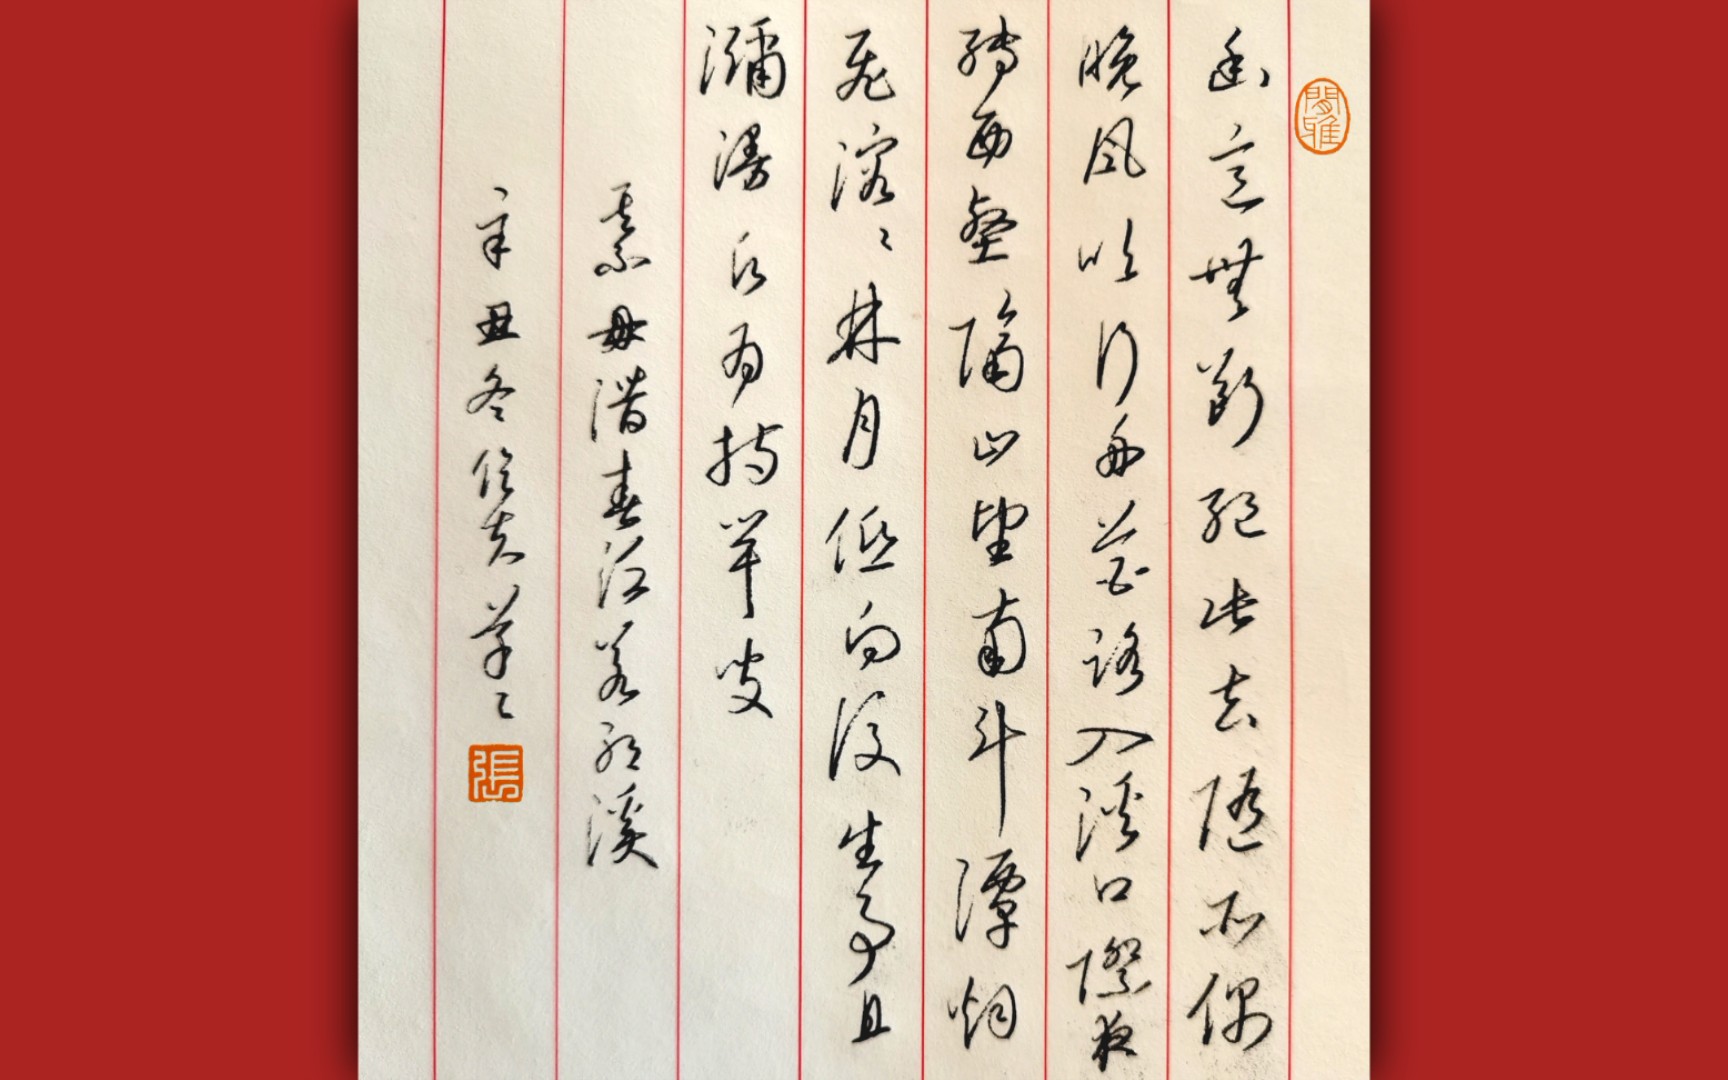 閒雅
幽意無斷絕此去隨所偶
晚風吹行舟花路入溪口際夜
轉西壑隔山望南斗潭烟
飛溶〻林月低向後生事且
瀰漫願為持竿叟
綦毋潛春泛若耶溪
辛丑冬草〻
張